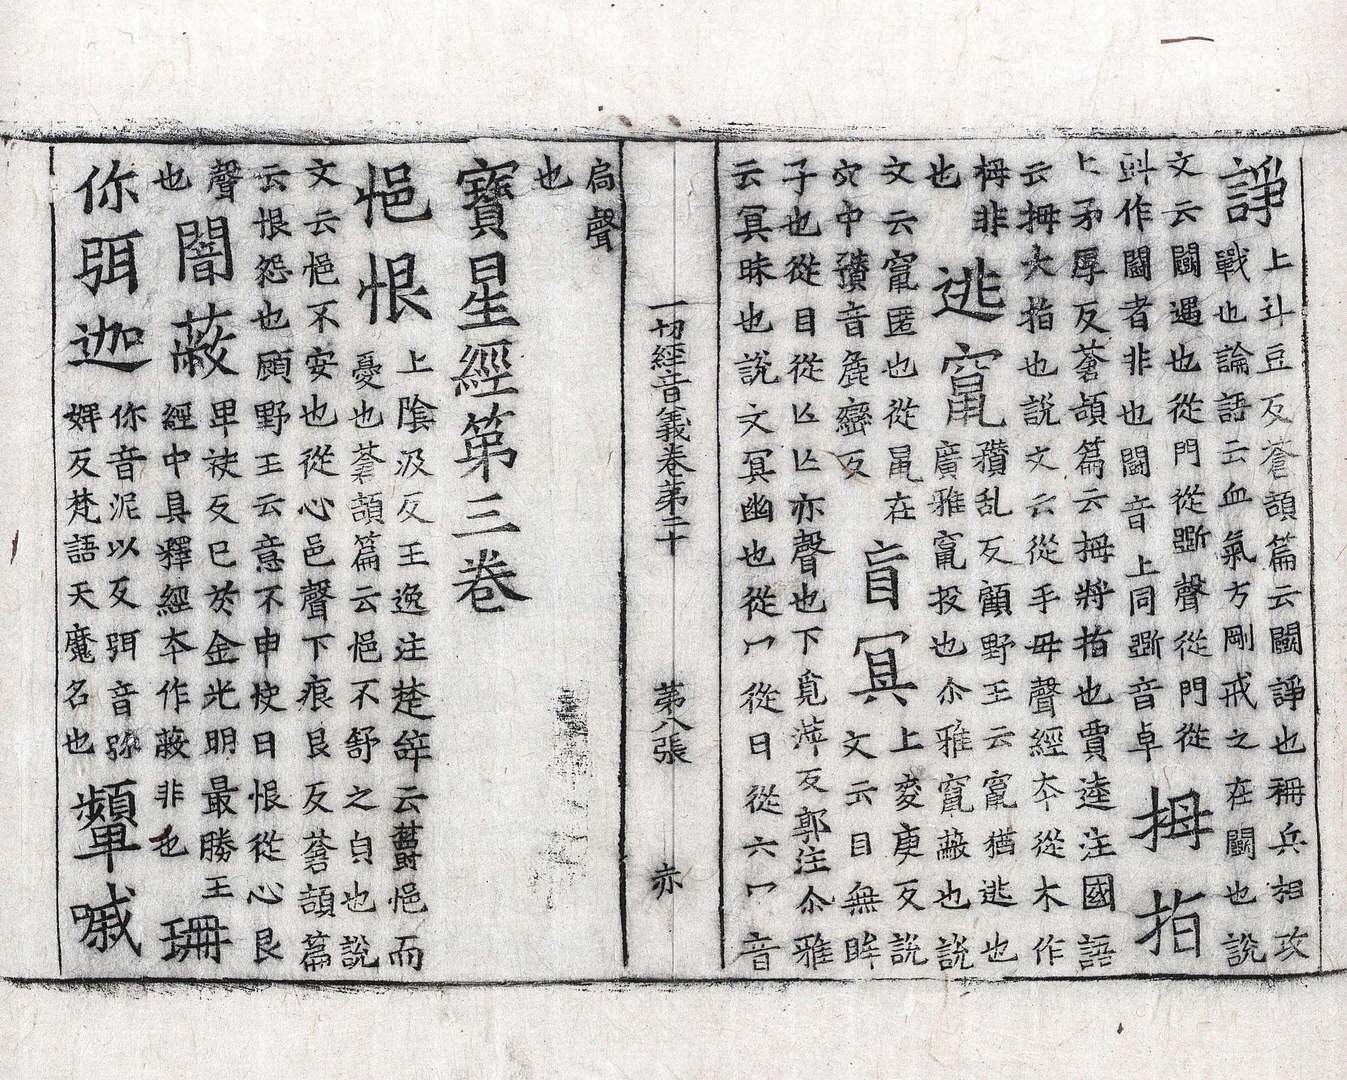 諍
上斗豆反蒼頡篇云鬪諍也稱兵相攻
戰也論語云血氣方剛戒之在鬪也說
文云鬪遇也從門從斲聲從門從
㪷作鬪者非也鬪音上同斲音卓
拇指
上矛厚反蒼頡篇云拇將指也賈逵注國語
云拇大指也說文云從手母聲經本從木作
栂非
也
逃竄
㸇乱反顧野王云竄猶逃也
廣雅竄投也尒雅竄蔽也說
文云竄匿也從鼠在
穴中㸇音麁巒反
盲冥
上麥庚反說
文云目無眸
子也從目從亾亾亦聲也下覓萍反郭注尒雅
云冥昧也說文冥幽也從冖從日從六冖音
一切經音義卷第二十 第八張 亦
扃聲
也
寶星經第三卷
悒恨
上陰汲反王逸注楚辭云悒而
憂也蒼頡篇云悒不舒之皃也說
文云悒不安也從心邑聲下痕艮反蒼頡篇
云恨怨也顧野王云意不申使日恨從心艮
聲
也
闇蔽
卑袂反已於金光明最勝王
經中具釋經本作蔽非也
珊
你弭迦
你音泥以反弭音弥
婢反梵語天魔名也
顰嘁